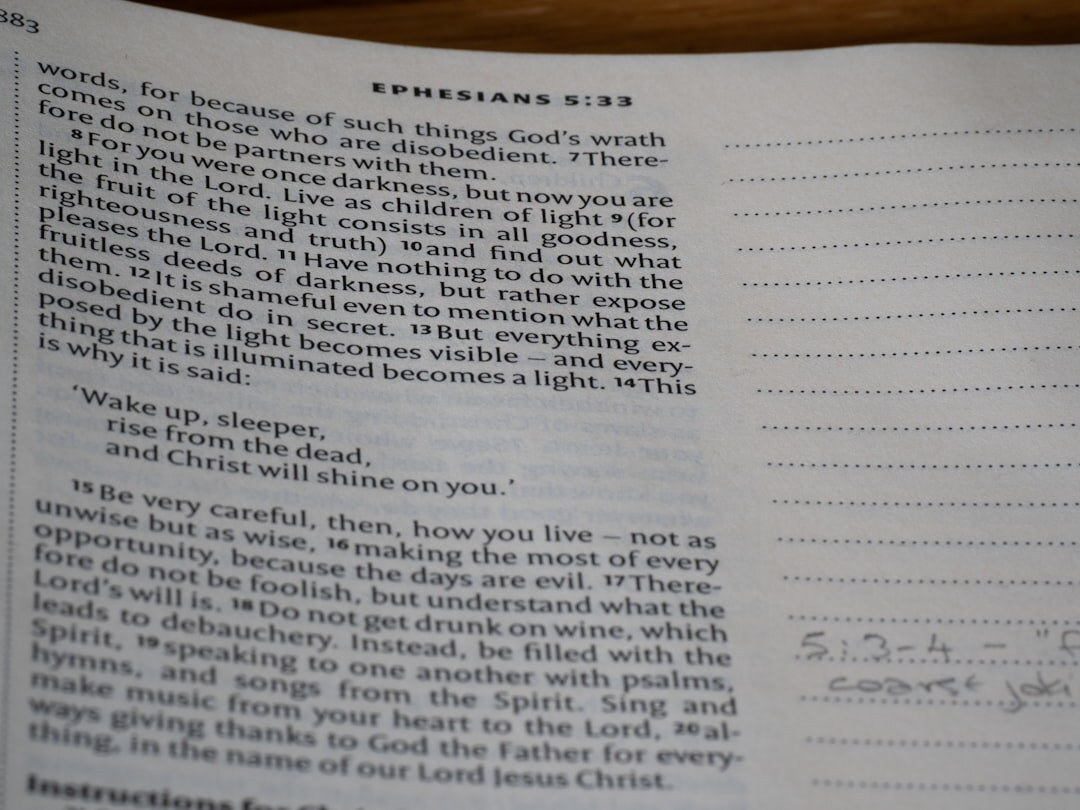 383
EPHESIANS 5:33
words, for because of such things God's wrath
comes on those who are disobedient. 7 There-
fore do not be partners with them.
8 For you were once darkness, but now you are
light in the Lord. Live as children of light 9 (for
the fruit of the light consists in all goodness,
righteousness and truth) 10 and find out what
pleases the Lord. 11 Have nothing to do with the
fruitless deeds of darkness, but rather expose
them. 12 It is shameful even to mention what the
disobedient do in secret. 13 But everything ex-
posed by the light becomes visible – and every-
thing that is illuminated becomes a light. 14 This
is why it is said:
‘Wake up, sleeper,
rise from the dead,
and Christ will shine on you.’
15 Be very careful, then, how you live – not as
unwise but as wise, 16 making the most of every
opportunity, because the days are evil. 17 There-
fore do not be foolish, but understand what the
Lord's will is. 18 Do not get drunk on wine, which
leads to debauchery. Instead, be filled with the
Spirit, 19 speaking to one another with psalms,
hymns, and songs from the Spirit. Sing and
make music from your heart to the Lord, 20 al-
ways giving thanks to God the Father for every-
thing, in the name of our Lord Jesus Christ.
Instructions for
5:3-4 - "
coarse